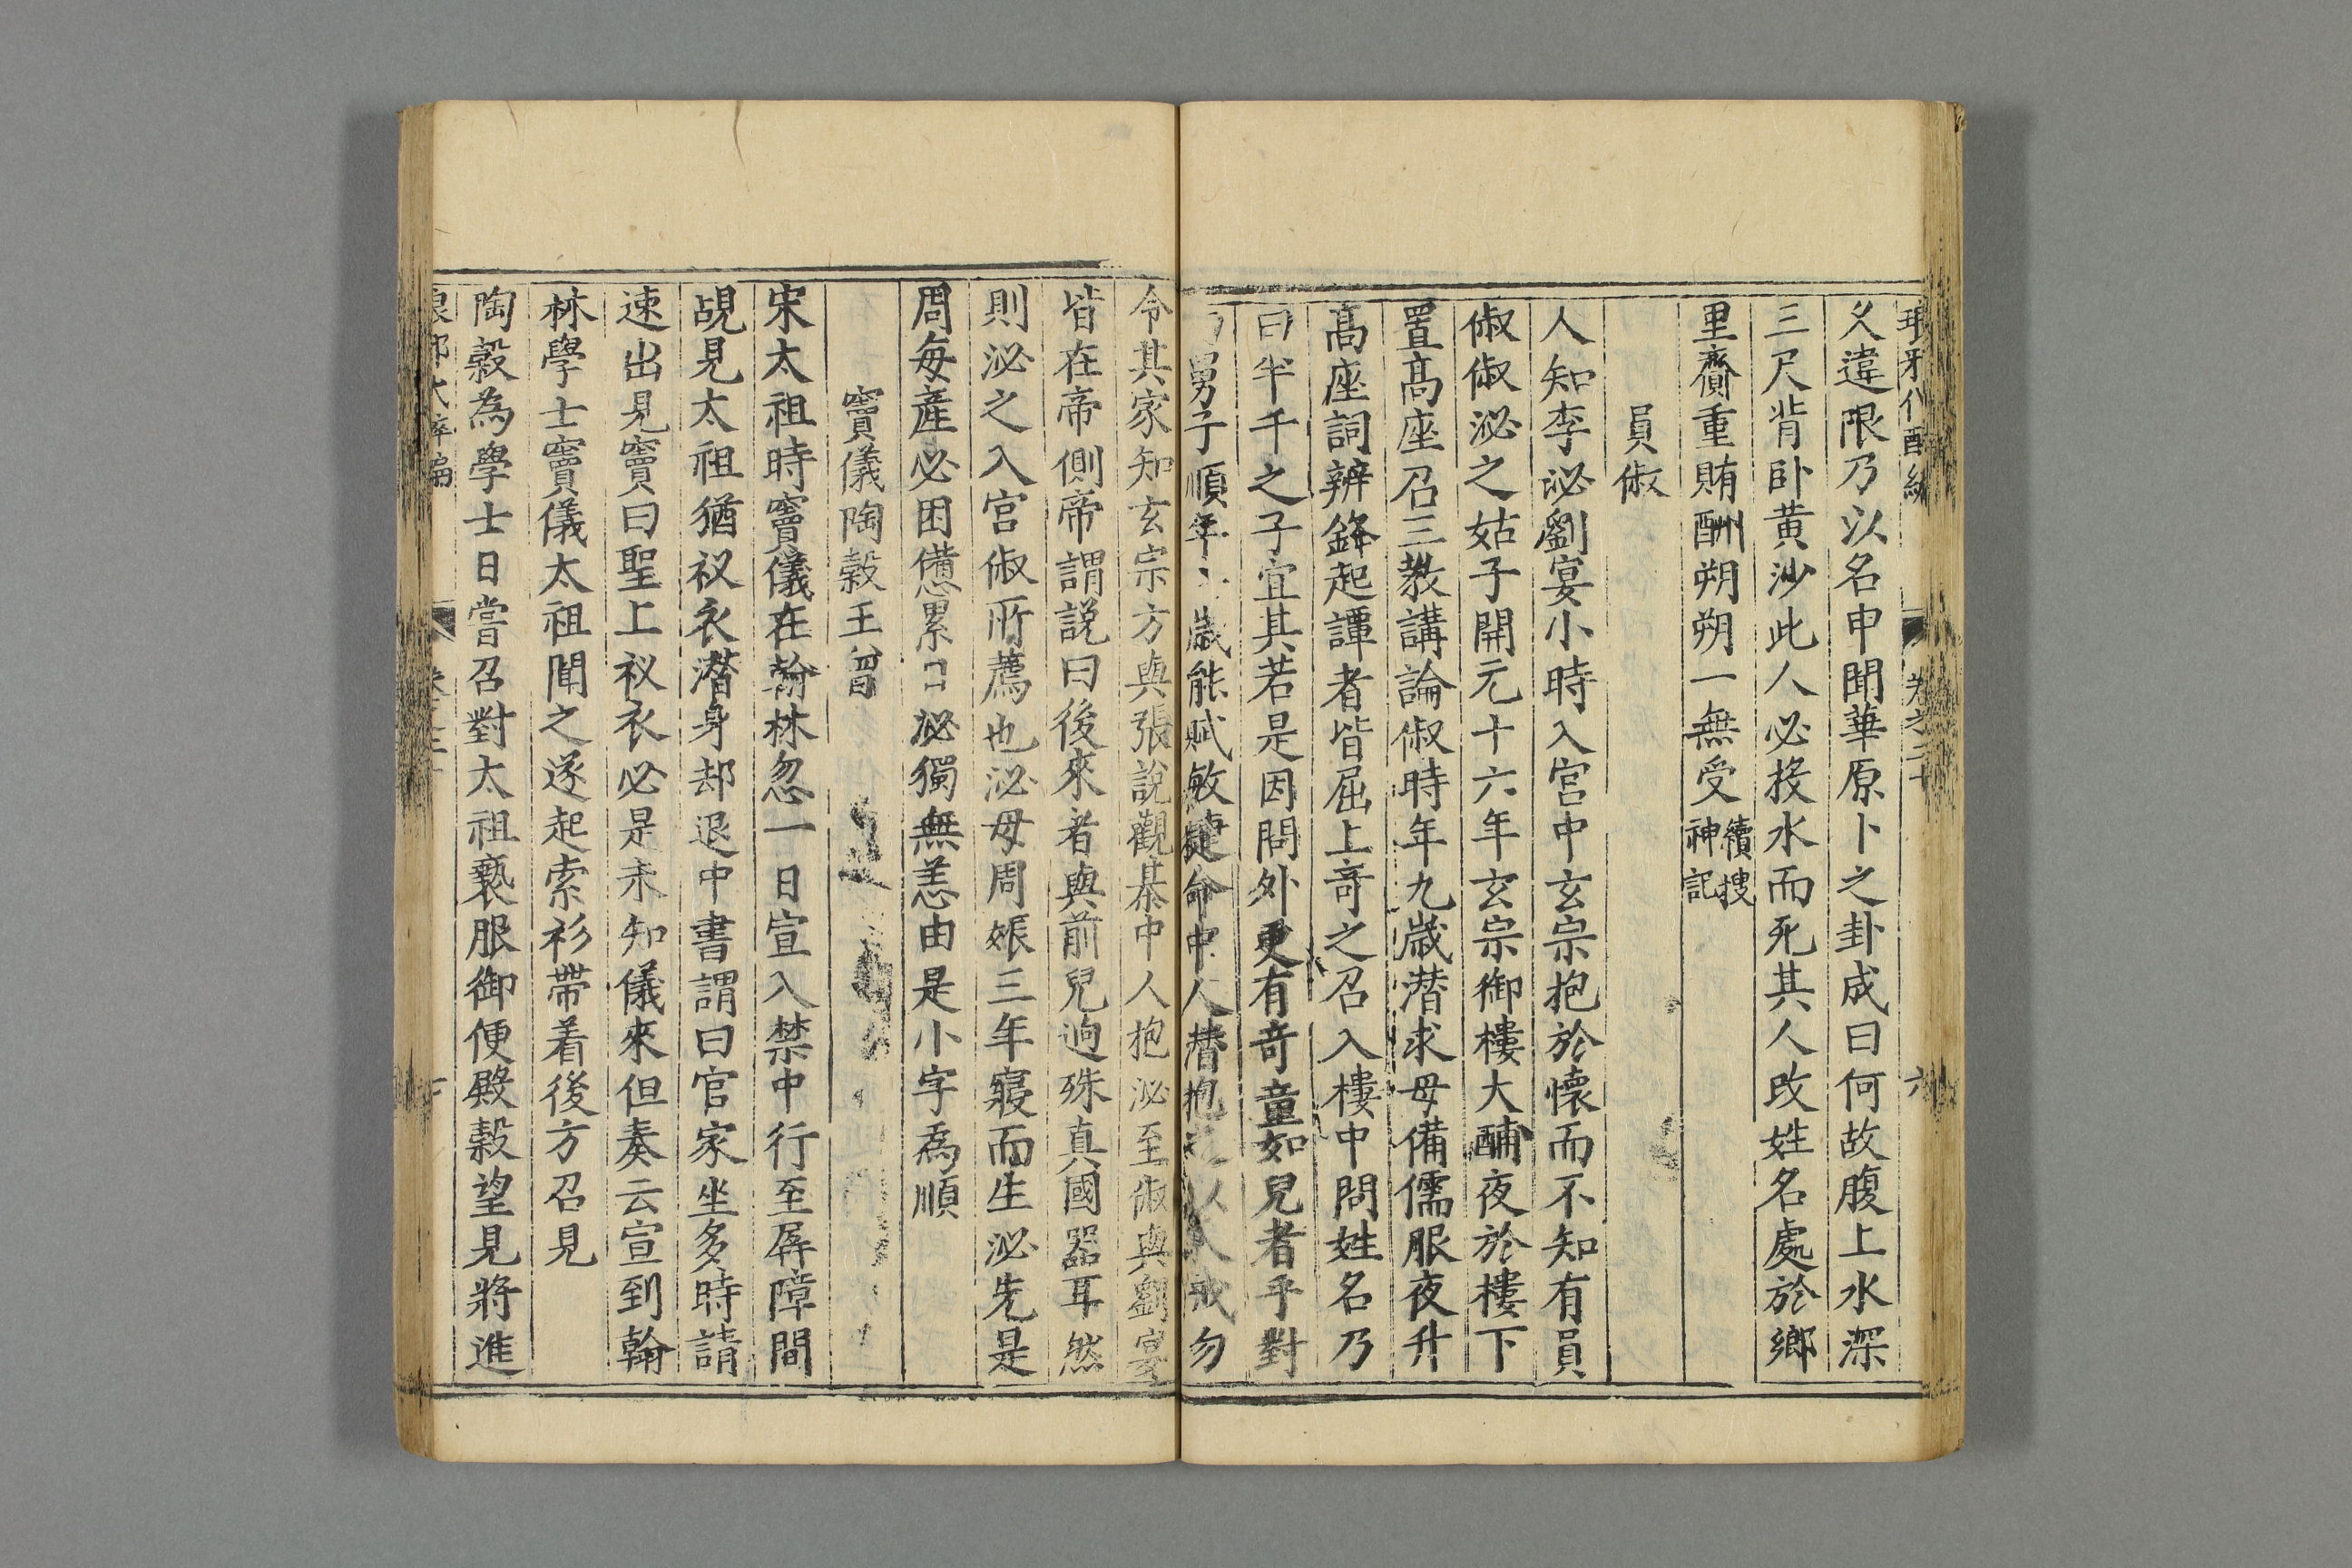 久違限乃以名申聞華原卜之卦成曰何故腹上水深
三尺背卧黄沙此人必投水而死其人改姓名處於鄉
里齎重賄酬朔朔一無受續搜神記
員俶
人知李泌劉宴小時入宮中玄宗抱於懷而不知有員
俶俶泌之姑子開元十六年玄宗御樓大酺夜於樓下
置高座召三教講論俶時年九歲潛求母備儒服夜升
高座詞辨鋒起譚者皆屈上奇之召入樓中問姓名乃
曰半千之子宜其若是因問外更有奇童如兒者乎對
舅子順年歲能賦敏捷命中人潜抱以入戒勿
令其家知玄宗方與張說觀棊中人抱泌至俶與劉宴
皆在帝側帝謂説曰後來者與前兒逈殊真國器耳然
則泌之入宮俶所薦也泌母周娠三年寢而生泌先是
周每產必困憊累日泌獨無恙由是小字為順
竇儀陶榖王曾
宋太祖時竇儀在翰林忽一日宣入禁中行至屏障間
覘見太祖猶衩衣潛身却退中書謂曰官家坐多時請
速出見竇曰聖上衩衣必是未知儀來但奏云宣到翰
林學士竇儀太祖聞之遂起索衫帶着後方召見
陶榖為學士日嘗召對太祖褻服御便殿榖望見將進